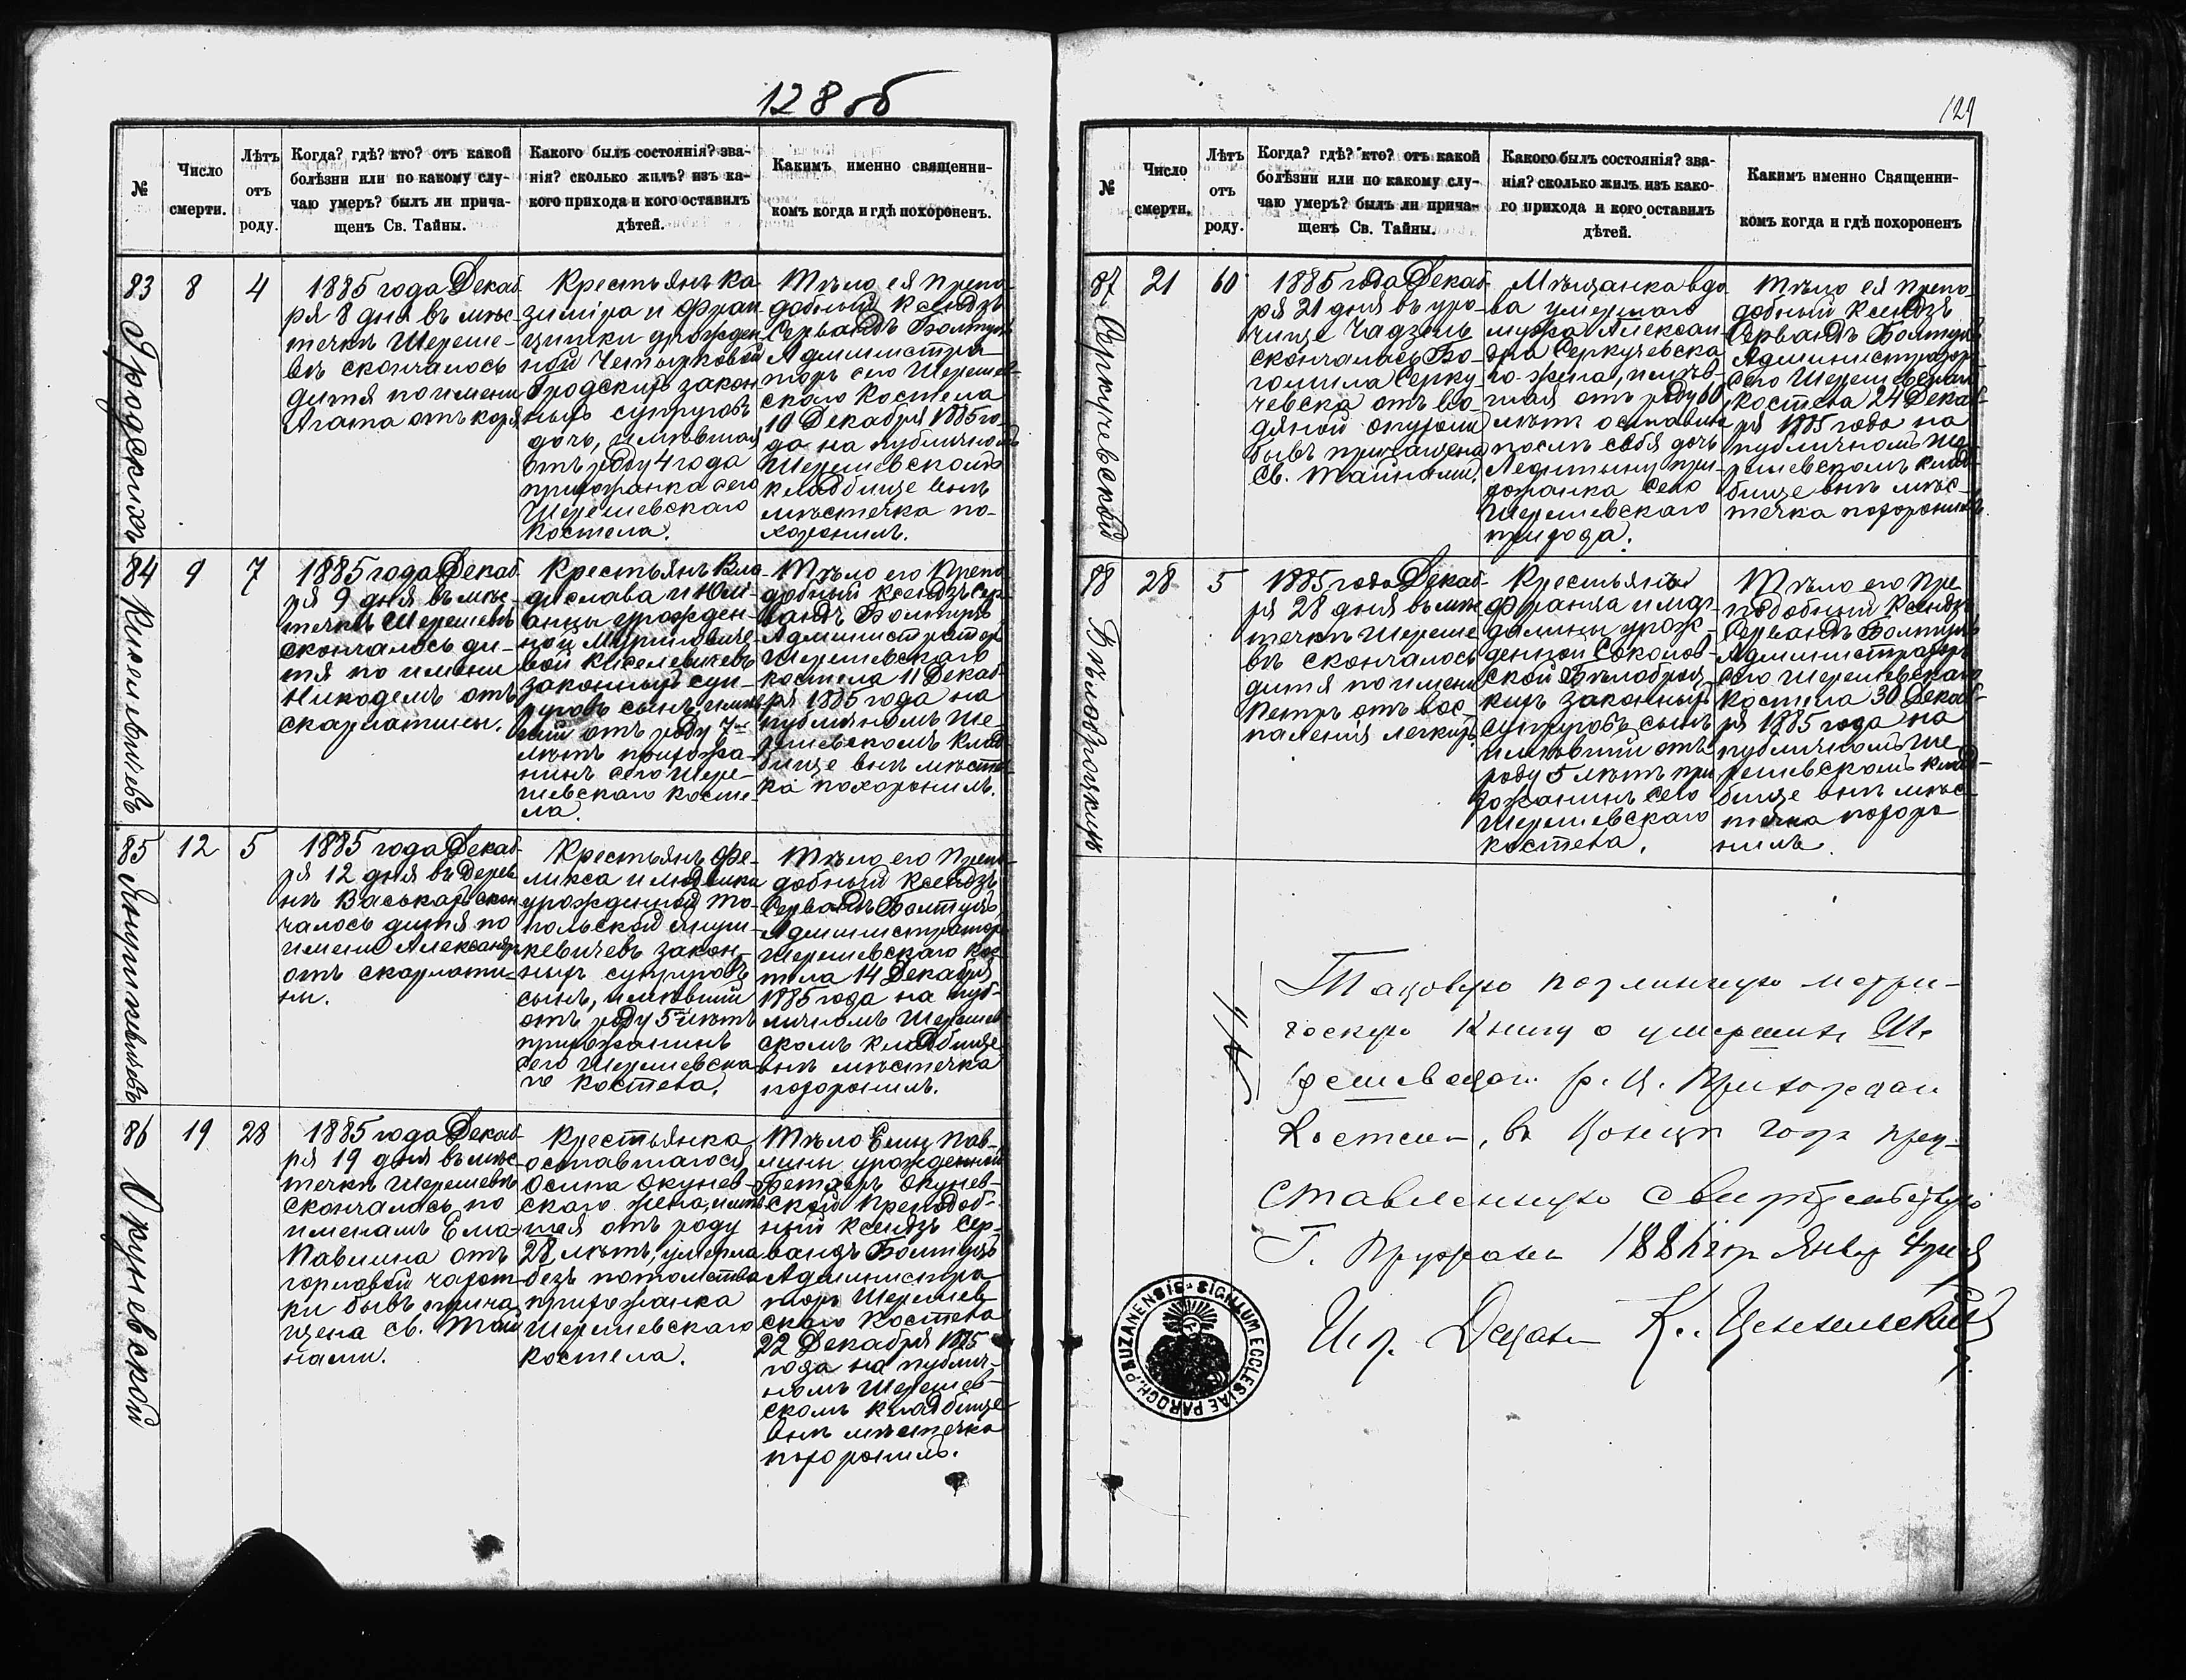 128 об
№
Число
смерти.
Лѣтъ
отъ
роду.
Когда? гдѣ? кто? отъ какой
болѣзни или по какому слу-
чаю умеръ? былъ ли прича-
щенъ Св. Тайны.
Какого былъ состоянія? зва-
нія? сколько жилъ? изъ ка-
кого прихода и кого оставилъ
дѣтей.
Какимъ именно священни-
комъ когда и гдѣ похороненъ.
83
Гродскихъ
8
4
1885 года Декаб
ря 8 дня въ мѣс-
течкѣ Шереше-
вѣ скончалось
дитя по имени
Агата отъ коря
Крестьянъ Ка
зиміра и Фран
цишки урожден
ной Четырковой
Гродскихъ закон
ныхъ супруговъ
дочь, имѣвшая
отъ роду 4 года
прихожанка сего
Шерешевскаго
костела.
Тѣло ея препо
добный Ксендзъ
Сервандъ Болтуць
Администра
торъ сего Шерешев-
скаго Костела
10 Декабря 1885 го-
да на публичномъ
Шерешевскомъ
кладбище внѣ
мѣстечка по-
хоронилъ.
84
Киселевичевъ
9
7
1885 года Декаб
ря 9 дня въ мѣс-
течкѣ Шерешевѣ
скончалось ди-
тя по имени
Никодемъ отъ
скарлатины.
Крестьянъ Вла
дислава и Юлі-
анны урожден-
ной Муриновиче-
вой Киселевичевъ
законныхъ суп-
руговъ сынъ, имѣв
шій отъ роду 7
лѣтъ прихожа-
нинъ сего Шере-
шевскаго косте-
ла.
Тѣло его Препо
добный Ксендзъ Сер-
вандъ Болтуць
Администраторъ
Шерешевскаго
костела 11 Декаб
ря 1885 года на
публичномъ Ше-
решевскомъ клад
бище внѣ мѣстеч
ка похоронилъ.
85
Янушкевичевъ
12
5
1885 года Декаб-
ря 12 дня въ дерев
нѣ Васькахъ скон
чалось дитя по
имени Александръ
отъ скарлати-
ны.
Крестьянъ Фе-
ликса и Людвики
урожденной То-
польской Януш-
кевичевъ закон-
ныхъ супруговъ
сынъ, имѣвшій
отъ роду 5 лѣтъ
прихожанинъ
сего Шерешевска-
го костела.
Тѣло его Препо-
добный Ксендзъ
Сервандъ Болтуць
Администраторъ
Шерешевскаго Кос-
тела 14 Декабря
1885 года на пуб-
личномъ Шерешев
скомъ кладбище
внѣ мѣстечка
похоронилъ.
86
Окуневской
19
28
1885 года Декаб-
ря 19 дня въ мѣс-
течкѣ Шерешевѣ
скончалась по
именамъ Ема
Павлина отъ
горловой чахот-
ки бывъ прича
щена Св. Тай
нами.
Крестьянка
оставшагося
Осипа Окунев-
скаго жена, имѣв
шая отъ роду
28 лѣтъ, умерла
безъ потомства
прихожанка
Шерешевскаго
костела.
Тѣло Емы Пав-
лины урожденной
Окунев-
ской Преподоб-
ный Ксендзъ Сер-
вандъ Болтуць
Администра
торъ Шерешев
скаго Костела
22 Декабря 1885
года на публич-
номъ Шерешев-
скомъ кладбище
внѣ мѣстечка
похоронилъ.
129
№
Число
смерти.
Лѣтъ
отъ
роду.
Когда? гдѣ? кто? отъ какой
болѣзни или по какому слу-
чаю умеръ? былъ ли прича-
щенъ Св. Тайны.
Какого былъ состоянія? зва-
нія? сколько жилъ изъ како-
го прихода и кого оставилъ
дѣтей.
Какимъ именно Священни-
комъ когда и гдѣ похороненъ
87
Серкучевской
21
60
1885 года Декаб-
ря 21 дня въ уро-
чище Чадзель
скончалась Бо-
гомила Серку-
чевска отъ во-
дяной опухоли
бывъ причащена
Св. Тайнами.
Мѣщанка вдо
ва умершаго
мужа Алексан-
дра Серкучевска
го жена, имѣв-
шая отъ роду 60
лѣтъ оставила
послѣ себя дочь
при-
хожанка сего
Шерешевскаго
прихода.
Тѣло ея Препо-
добный Ксендзъ
Сервандъ Болтуць
Администраторъ
сего Шерешевскаго
костела 24 Декаб-
ря 1885 года на
публичномъ Ше-
решевскомъ клад
бище внѣ мѣс-
течка похоронилъ.
88
Бѣлобродскихъ
28
5
1885 года Декаб-
ря 28 дня въ мѣс
течкѣ Шереше
вѣ скончалось
дитя по имени
Петръ отъ вос-
паленія легкихъ
Крестьянъ
Франца и Маг-
далины урож-
денной Соколов-
ской Бѣлоброд-
кихъ законныхъ
супруговъ сынъ
имѣвшій отъ
роду 5 лѣтъ при
хожанинъ сего
Шерешевскаго
костела.
Тѣло его Пре-
подобный Ксендзъ
Сервандъ Болтуць
Администраторъ
сего Шерешевскаго
Костела 30 Декаб-
ря 1885 года на
публичномъ Ше
решевскомъ клад-
бище внѣ мѣс-
течка похоро
нилъ.
Таковую подлинную метри-
ческую Книгу о умершихъ Ше
решевскаго р. к. Приходскаго
Костела, въ концѣ года пред-
ставленную свидѣтельствую
Г. Пружаны 1886 года Января 4 дня
Деканъ К.
SIGILLUM ECCLESIAE PAROCH. PRUZANENSIS